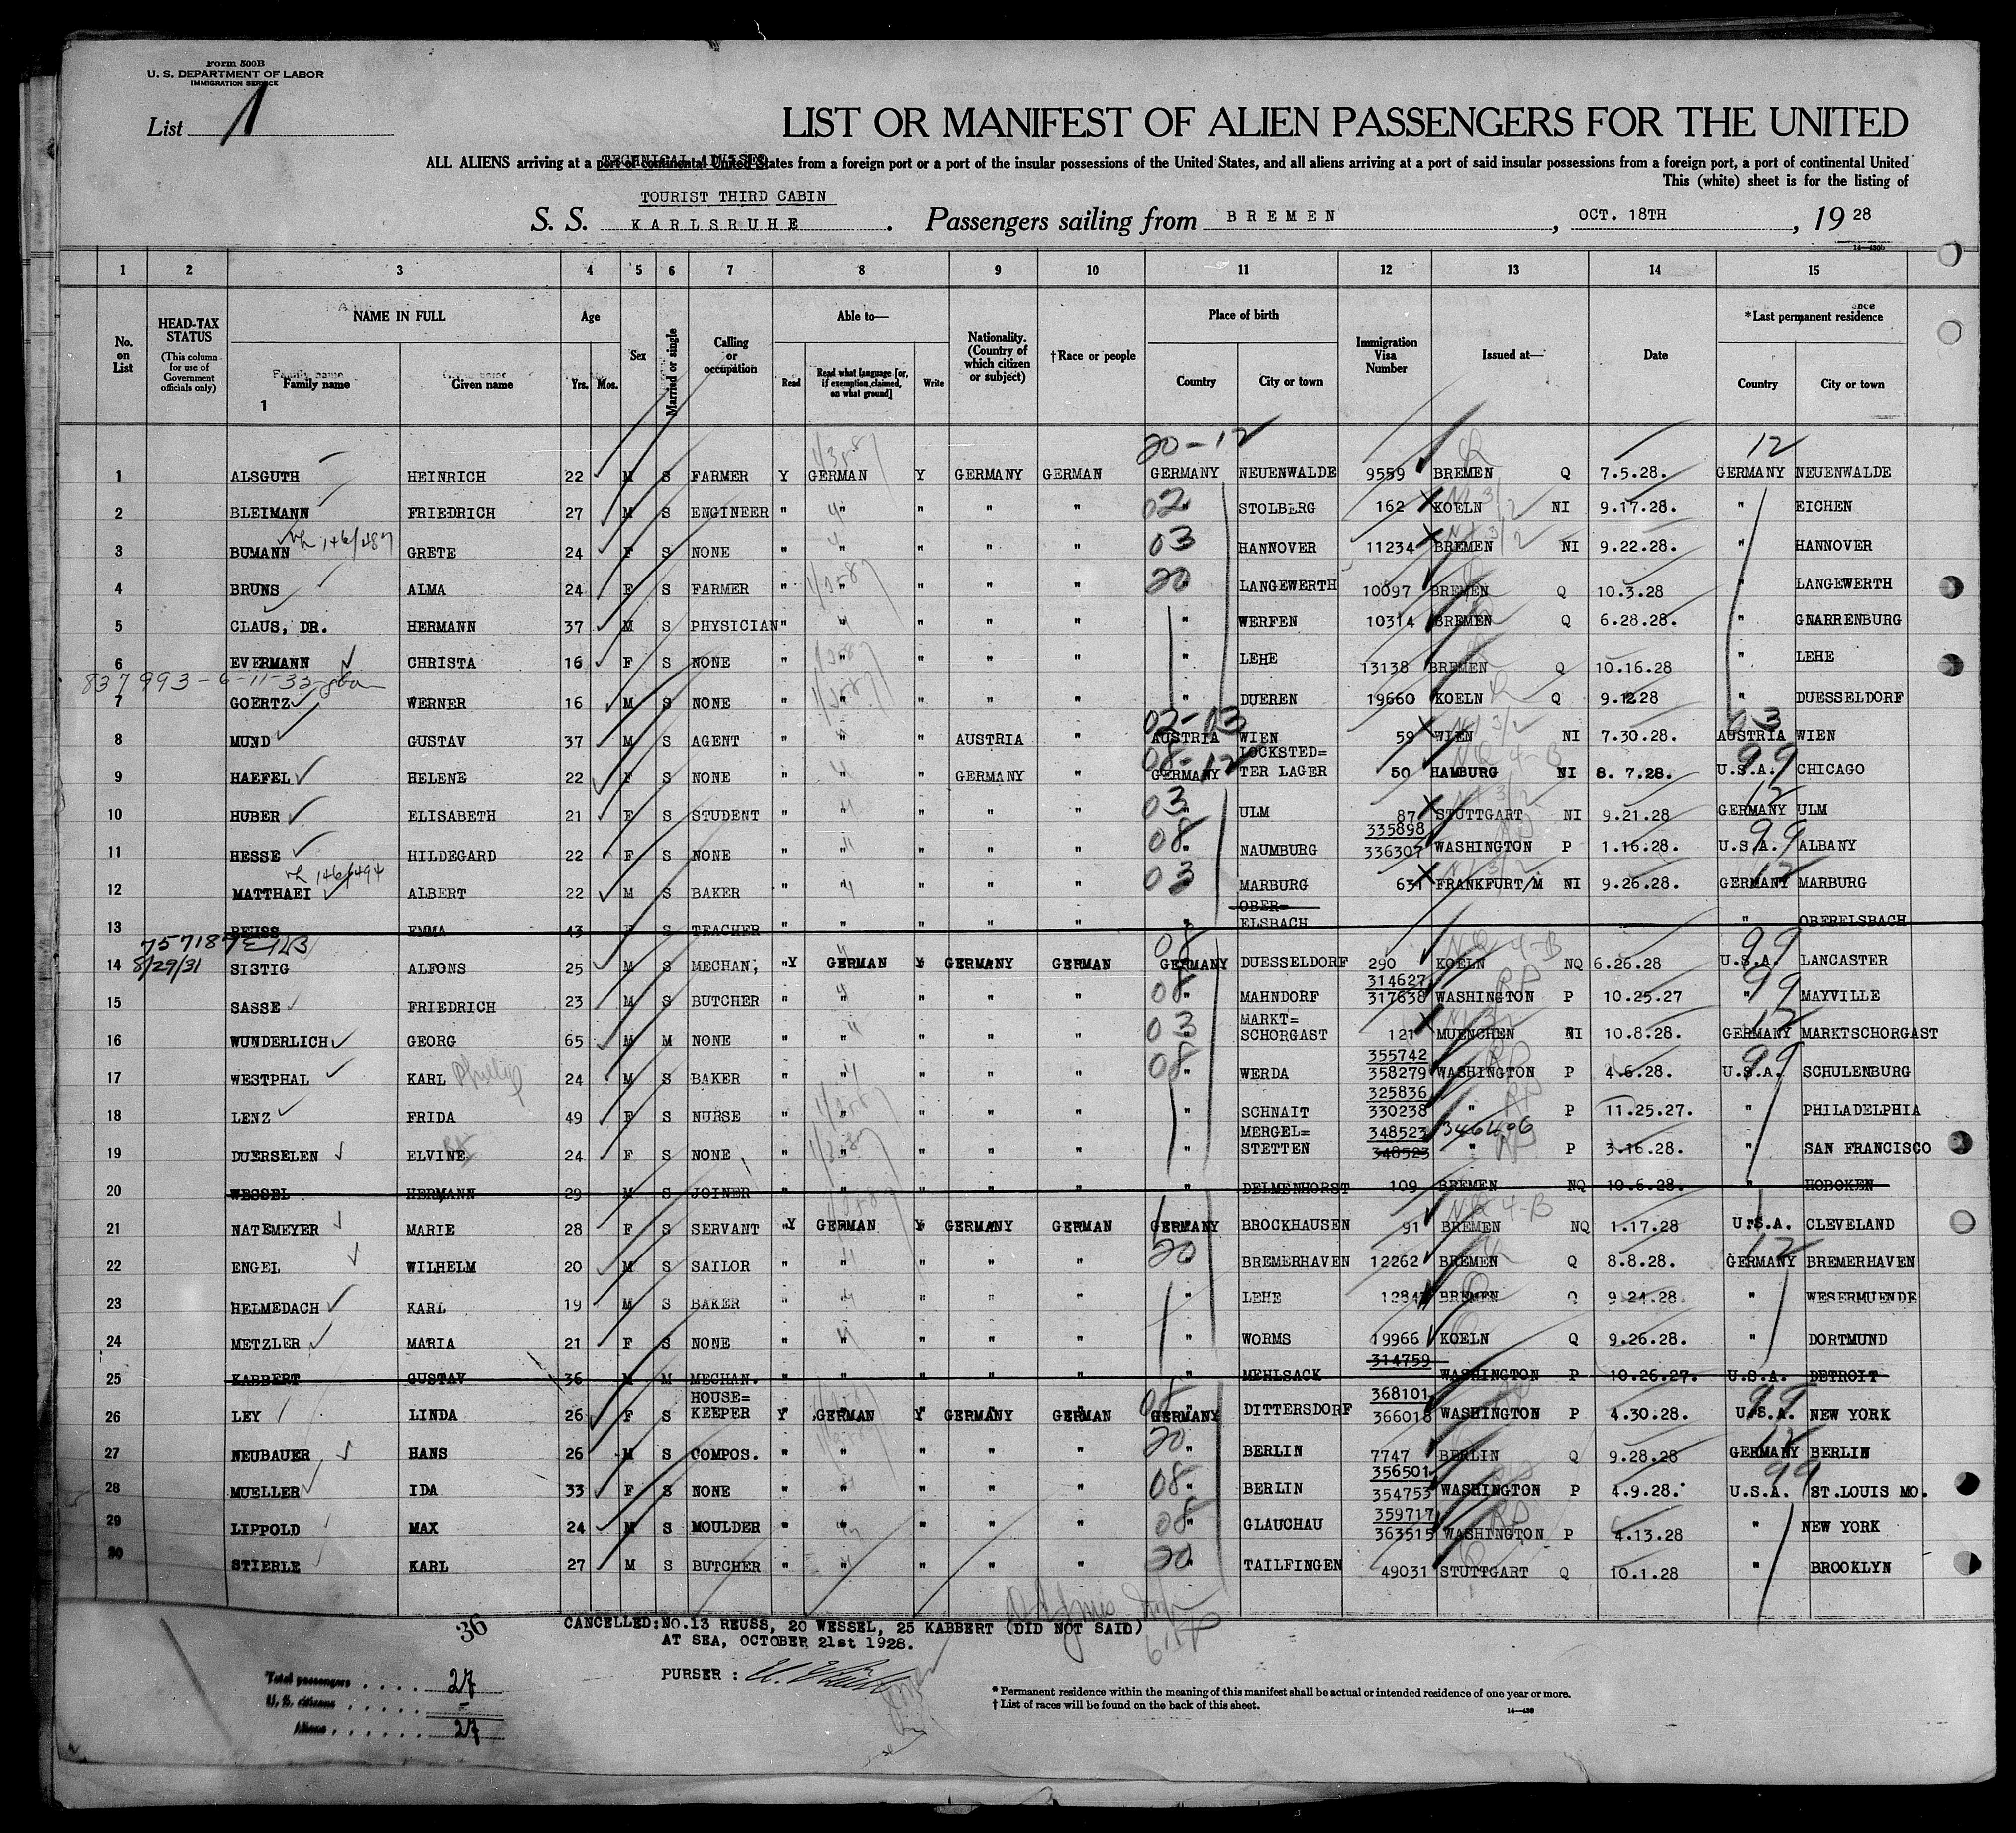 Form 500B
U. S. DEPARTMENT OF LABOR
IMMIGRATION SERVICE
List 1
LIST OR MANIFEST OF ALIEN PASSENGERS FOR THE UNITED
ALL ALIENS arriving at a port of continental United States from a foreign port or a port of the insular possessions of the United States, and all aliens arriving at a port of said insular possessions from a foreign port, a port of continental United
This (white) sheet is for the listing of
TOURIST THIRD CABIN
S. S. KARLSRUHE . Passengers sailing from BREMEN , OCT. 18TH , 19 28
1 2 3 4 5 6 7 8 9 10 11 12 13 14 15
No. on List
HEAD-TAX STATUS (This column for use of Government officials only)
NAME IN FULL
Family name Given name
Age
Yrs. Mos.
Sex
Married or single
Calling or occupation
Able to—
Read Read what language [or, if exemption claimed, on what ground] Write
Nationality. (Country of which citizen or subject)
†Race or people
Place of birth
Country City or town
Immigration Visa Number
Issued at—
Date
*Last permanent residence
Country City or town
1
20-12 12
1 ALSGUTH HEINRICH 22 M S FARMER Y GERMAN Y GERMANY GERMAN GERMANY NEUENWALDE 9559 BREMEN Q 7.5.28. GERMANY NEUENWALDE
2 BLEIMANN FRIEDRICH 27 M S ENGINEER " " " " " 02 " STOLBERG 162 KOELN NI 9.17.28. " EICHEN
3 BUMANN 146/487 GRETE 24 F S NONE " " " " " 03 " HANNOVER 11234 BREMEN NI 9.22.28. " HANNOVER
4 BRUNS ALMA 24 F S FARMER " " " " " 20 " LANGEWERTH 10097 BREMEN Q 10.3.28 " LANGEWERTH
5 CLAUS, DR. HERMANN 37 M S PHYSICIAN " " " " " " WERFEN 10314 BREMEN Q 6.28.28. " GNARRENBURG
6 EVERMANN CHRISTA 16 F S NONE " " " " " " LEHE 13138 BREMEN Q 10.16.28 " LEHE
837993-6-11-33
7 GOERTZ WERNER 16 M S NONE " " " " " " DUEREN 19660 KOELN Q 9.1228 " DUESSELDORF
02-03 03
8 MUND GUSTAV 37 M S AGENT " " " AUSTRIA " AUSTRIA WIEN 59 WIEN NI 7.30.28. AUSTRIA WIEN
08-12 99
9 HAEFEL HELENE 22 F S NONE " " " GERMANY " GERMANY LOCKSTED= TER LAGER 50 HAMBURG NI 8. 7.28. U.S.A. CHICAGO
10 HUBER ELISABETH 21 F S STUDENT " " " " " 03 " ULM 87 STUTTGART NI 9.21.28 12 GERMANY ULM
11 HESSE HILDEGARD 22 F S NONE " " " " " 08 " NAUMBURG 335898 336307 WASHINGTON P 1.16.28. 99 U.S.A. ALBANY
12 MATTHAEI 146/494 ALBERT 22 M S BAKER " " " " " 03 " MARBURG 631 FRANKFURT/M NI 9.26.28. 12 GERMANY MARBURG
13 REUSS EMMA 43 F S TEACHER " " " " " " OBER= ELSBACH " OBERELSBACH
757187
8/29/31
14 SISTIG ALFONS 25 M S MECHAN, Y GERMAN Y GERMANY GERMAN 08 GERMANY DUESSELDORF 290 KOELN NQ 6.26.28 99 U.S.A. LANCASTER
15 SASSE FRIEDRICH 23 M S BUTCHER " " " " " 08 " MAHNDORF 314627 317638 WASHINGTON P 10.25.27 99 " MAYVILLE
16 WUNDERLICH GEORG 65 M M NONE " " " " " 03 " MARKT= SCHORGAST 121 MUENCHEN NI 10.8.28. 12 GERMANY MARKTSCHORGAST
17 WESTPHAL KARL Phillip 24 M S BAKER " " " " " 08 " WERDA 355742 358279 WASHINGTON P 4.6.28. 99 U.S.A. SCHULENBURG
18 LENZ FRIDA 49 F S NURSE " " " " " " SCHNAIT 325836 330238 " P 11.25.27. " PHILADELPHIA
19 DUERSELEN ELVINE 24 F S NONE " " " " " " MERGEL= STETTEN 348523 348523 346496 " P 3.16.28. " SAN FRANCISCO
20 WESSEL HERMANN 29 M S JOINER " " " " " " DELMENHORST 109 BREMEN NQ 10.6.28. " HOBOKEN
21 NATEMEYER MARIE 28 F S SERVANT Y GERMAN Y GERMANY GERMAN GERMANY BROCKHAUSEN 91 BREMEN NQ 1.17.28 U.S.A. CLEVELAND
22 ENGEL WILHELM 20 M S SAILOR " " " " " 20 " BREMERHAVEN 12262 BREMEN Q 8.8.28. 12 GERMANY BREMERHAVEN
23 HELMEDACH KARL 19 M S BAKER " " " " " " LEHE 1284 BREMEN Q 9.24.28 " WESERMUENDE
24 METZLER MARIA 21 F S NONE " " " " " " WORMS 19966 KOELN Q 9.26.28. " DORTMUND
25 KABBERT GUSTAV 36 M M MECHAN. " " " " " " MEHLSACK 314759 WASHINGTON P 10.26.27. U.S.A. DETROIT
26 LEY LINDA 26 F S HOUSE= KEEPER Y GERMAN Y GERMANY GERMAN 08 GERMANY DITTERSDORF 368101 366018 WASHINGTON P 4.30.28. 99 U.S.A. NEW YORK
27 NEUBAUER HANS 26 M S COMPOS. " " " " " 20 " BERLIN 7747 BERLIN Q 9.28.28 12 GERMANY BERLIN
28 MUELLER IDA 33 F S NONE " " " " " 08 " BERLIN 356501 354753 WASHINGTON P 4.9.28. 99 U.S.A. ST.LOUIS MO.
29 LIPPOLD MAX 24 M S MOULDER " " " " " 08 " GLAUCHAU 359717 363515 WASHINGTON P 4.13.28 " NEW YORK
30 STIERLE KARL 27 M S BUTCHER " " " " " 20 " TAILFINGEN 49031 STUTTGART Q 10.1.28 " BROOKLYN
36
CANCELLED:NO.13 REUSS, 20 WESSEL, 25 KABBERT (DID NOT SAID)
AT SEA, OCTOBER 21st 1928.
PURSER :
Total passengers . . . . 27
U. S. citizens . . . . . –
Aliens . . . . . . 27
* Permanent residence within the meaning of this manifest shall be actual or intended residence of one year or more.
† List of races will be found on the back of this sheet.
14—430